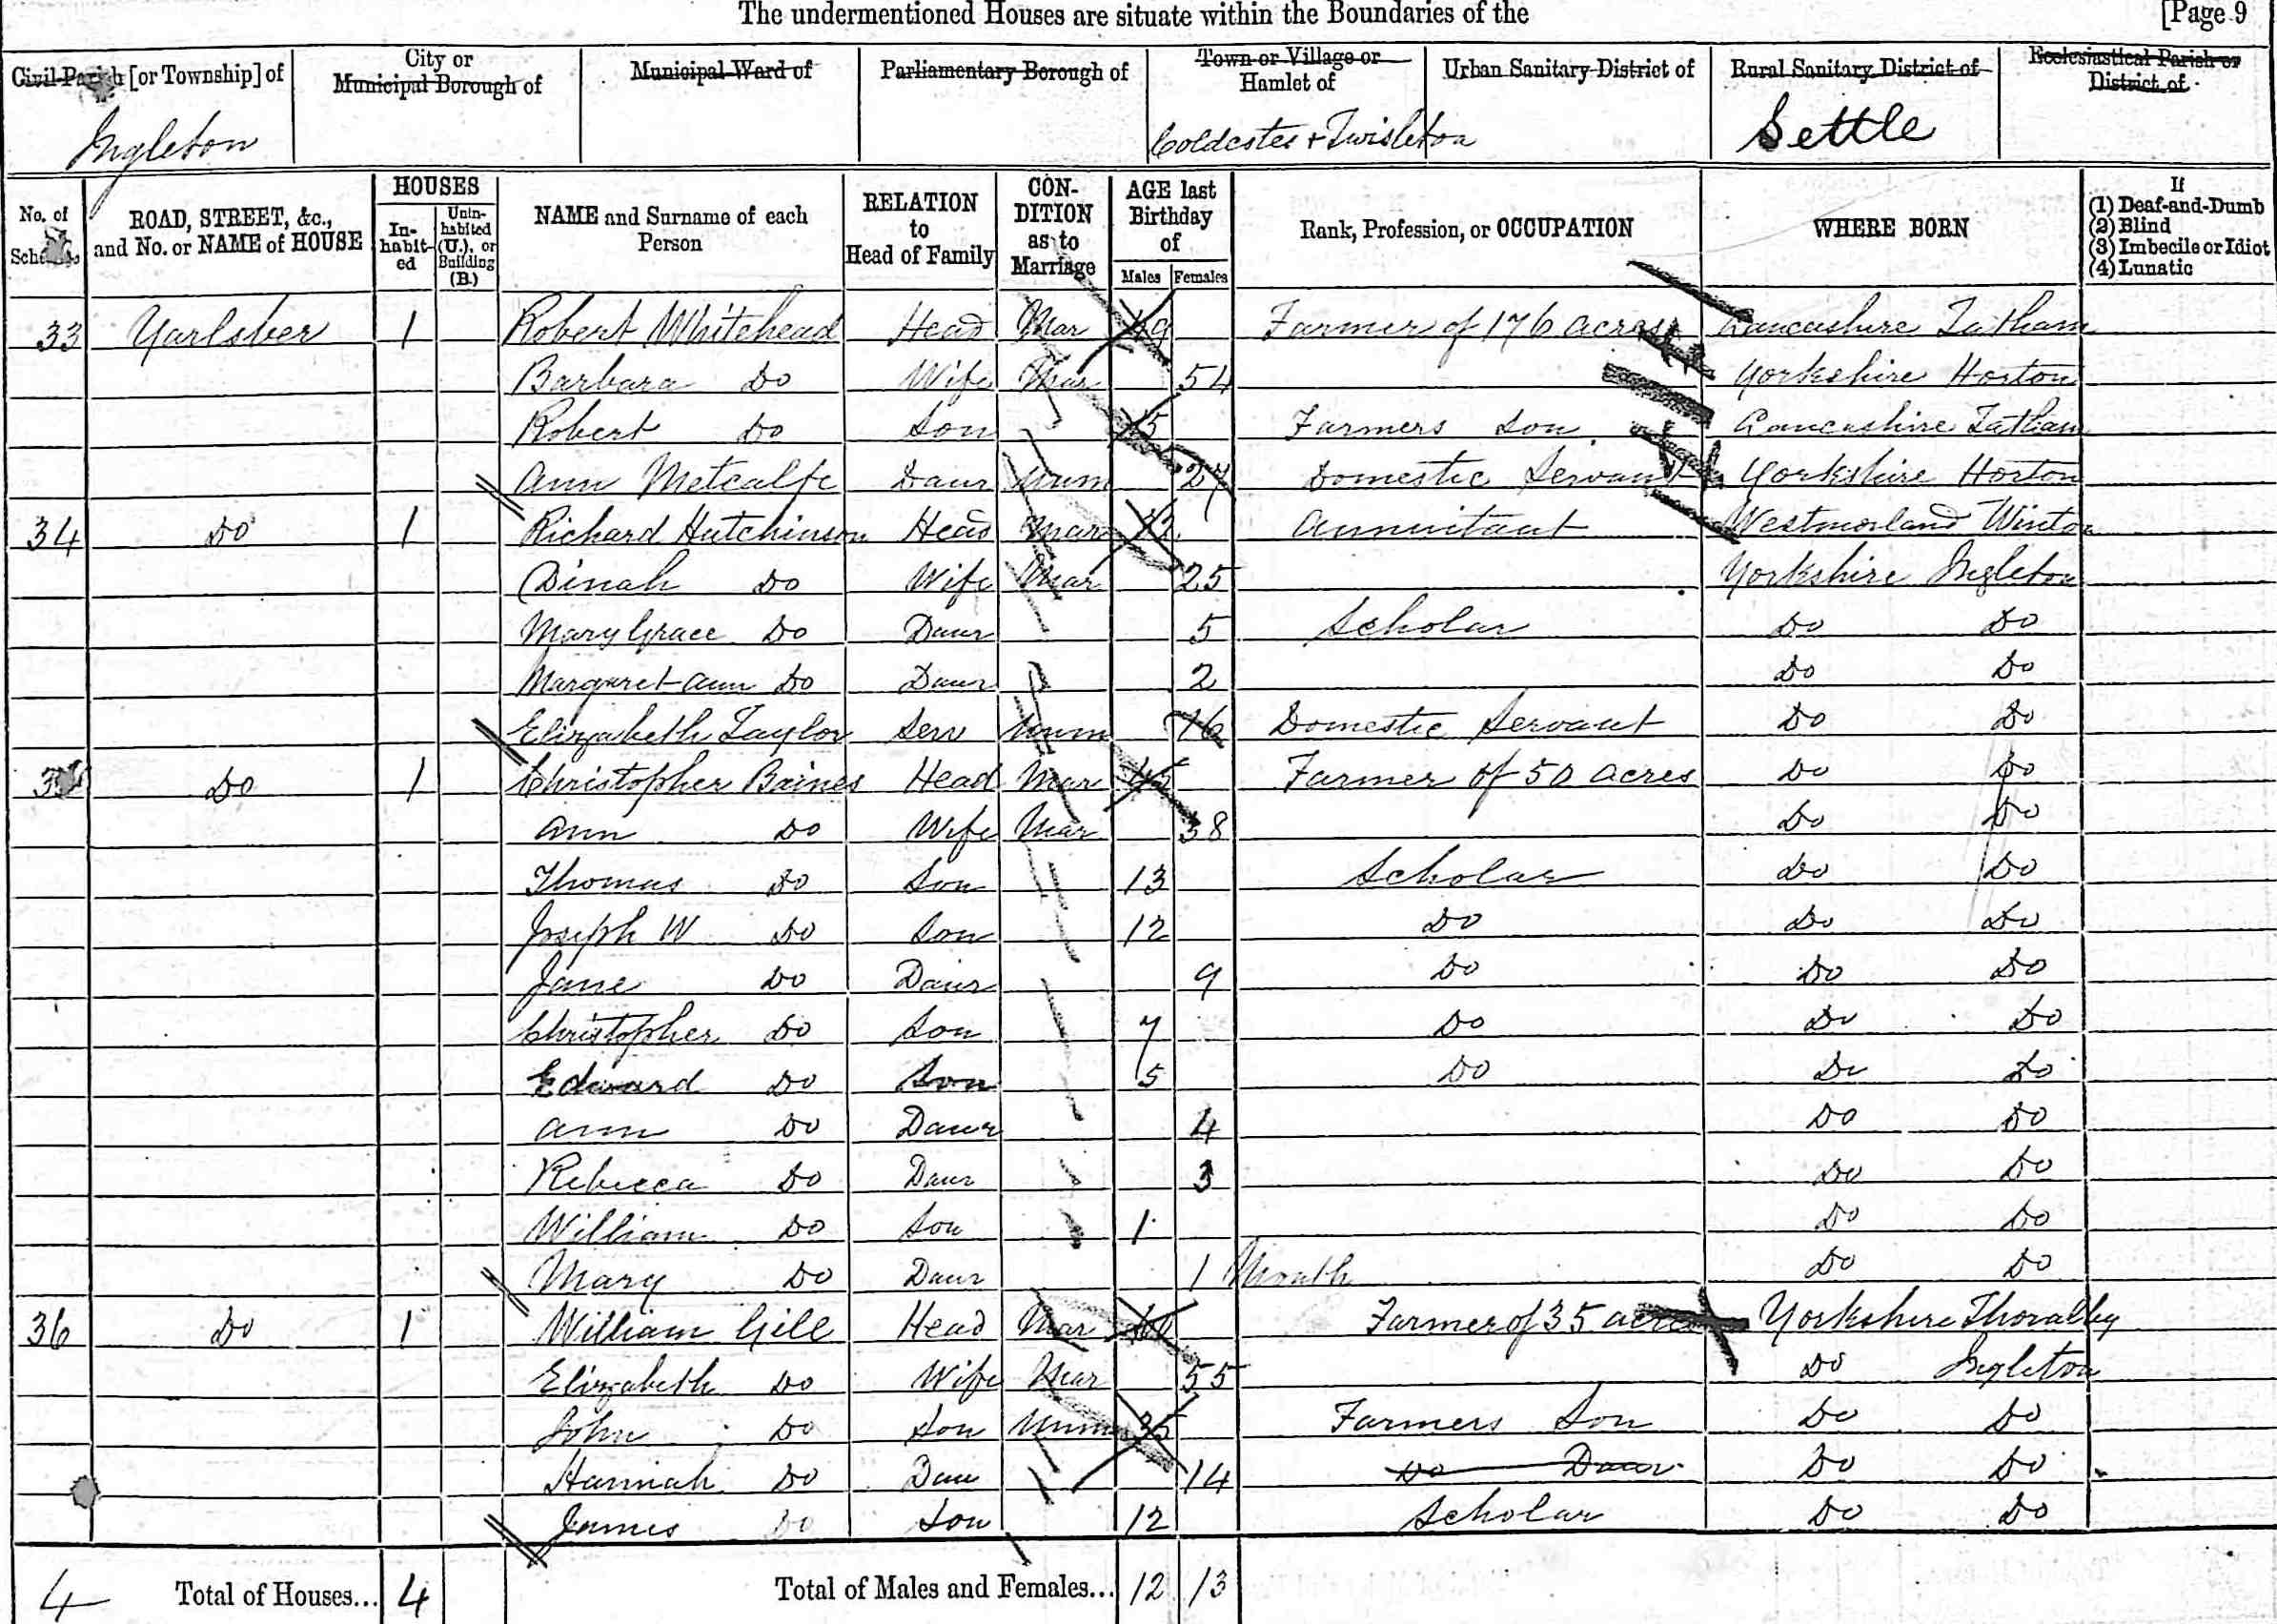 The undermentioned Houses are situate within the Boundaries of the [Page 9
Civil Parish [or Township] of City or Municipal Borough of Municipal Ward of Parliamentary Borough of Town or Village or Hamlet of Urban Sanitary District of Rural Sanitary District of Ecclesiastical Parish or District of
Ingleton Coldcotes + Twisleton Settle
No. of Schedule ROAD, STREET, &c., and No. or NAME of HOUSE HOUSES Inhabited Uninhabited (U.), or Building (B.) NAME and Surname of each Person RELATION to Head of Family CONDITION as to Marriage AGE last Birthday of Males Females Rank, Profession, or OCCUPATION WHERE BORN If (1) Deaf-and-Dumb (2) Blind (3) Imbecile or Idiot (4) Lunatic
33 Yarlsber 1 Robert Whitehead Head Mar 49 Farmer of 176 acres Lancashire Tatham
Barbara Do Wife Mar 54 Yorkshire Horton
Robert Do Son 15 Farmers Son Lancashire Tatham
Ann Metcalfe Daur Unm 27 Domestic Servant Yorkshire Horton
34 Do 1 Richard Hutchinson Head Mar Annuitant Westmorland Winton
Dinah Do Wife Mar 25 Yorkshire Ingleton
Mary Grace Do Daur 5 Scholar Do Do
Margaret Ann Do Daur 2 Do Do
Elizabeth Taylor Serv Unm 16 Domestic Servant Do Do
Do 1 Christopher Baines Head Mar Farmer of 50 acres Do Do
Ann Do Wife Mar 38 Do Do
Thomas Do Son 13 Scholar Do Do
Joseph W Do Son 12 Do Do Do
Jane Do Daur 9 Do Do Do
Christopher Do Son 7 Do Do Do
Edward Do Son 5 Do Do Do
Ann Do Daur 4 Do Do
Rebecca Do Daur 3 Do Do
William Do Son 1 Do Do
Mary Do Daur 1 Month Do Do
36 Do 1 William Gill Head Mar Farmer of 35 acres Yorkshire Thoralby
Elizabeth Do Wife Mar 55 Do Ingleton
John Do Son Unm 35 Farmers Son Do Do
Hannah Do Daur 14 Do Daur Do Do
James Do Son 12 Scholar Do Do
4 Total of Houses... 4 Total of Males and Females... 12 13